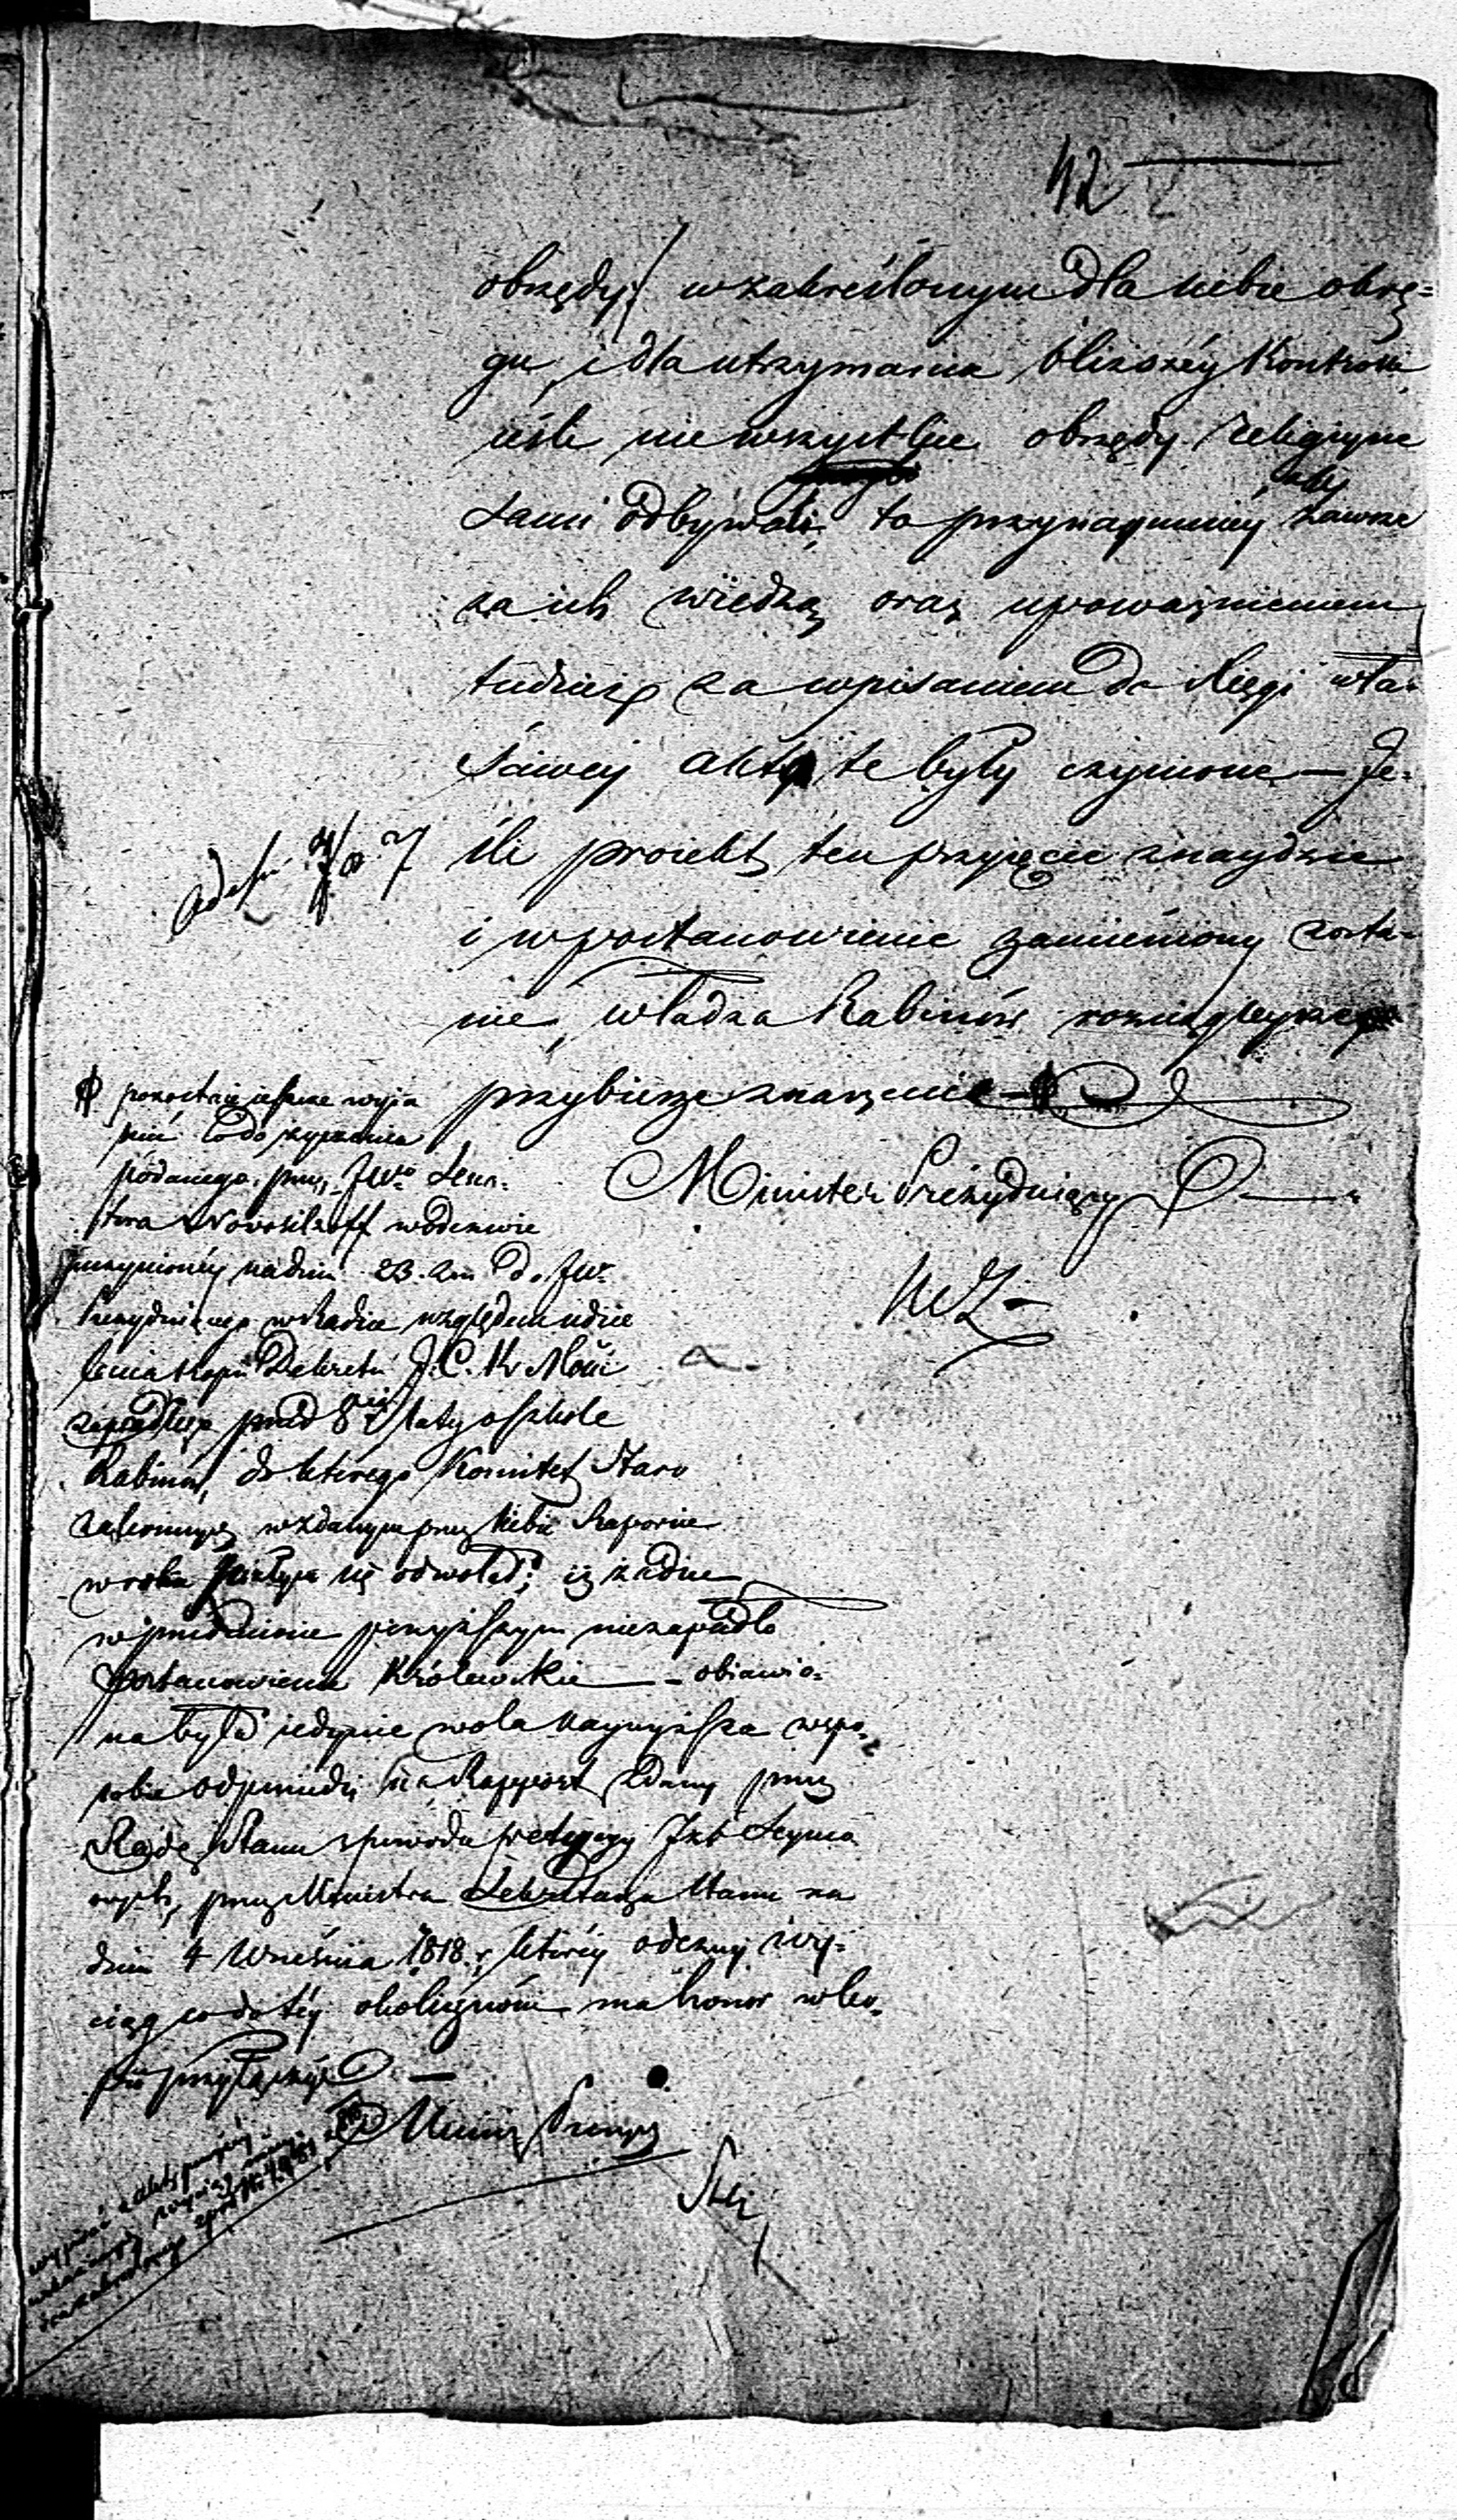 42
obrzędy/ w zakreślonym dla siebie okrę=
gu, i dla utrzymania bliższéy Kontrolli
ieśli nie wszystkie obrzędy religiyne
sami odbywali, to przynaymniéy aby zawsze
za ich wiedzą oraz upoważnieniem
tudzież za wpisaniem do Xięgi wła=
ściwey akta te były czynione — Je=
śli proiekt ten przyięcie znaydzie
i w postanowienie zamieniony zosta=
nie, władza Rabinów rozciągleysze
przybierze znaczenie —
Minister Prezyduiący
pozostaie ieszcze wyia
śnić co do żądania
podanego przez JW. Sena=
tora Novosiltzoff w odezwie
uczynionéy na dniu 23. do JW.
Prezyduiącego w Radzie względem udzie
lenia kopii Dekretu J. C. K. Mości
zapadłego przed laty o szkole
Rabinów, do którego Komitet Staro
zakonnych w zdanym przez siebie Raporcie
w roku się odwołał; iż żadne
w przedmiocie powyższym niezapadło
postanowienie Królewskie — obiawio=
na była iedynie wola naywyższa w spo=
sobie odpowiedzi na Rapport zdany przez
Radę Stanu z powodu petycyy Izb Seymo
wych, przez Ministra Sekretarza Stanu na
dniu 4 Września 1818. r. któréy odezwy wy=
ciąg co do téy okoliczności ma honor w ko=
pii przyłączyć. —
Minis. Prezyd.